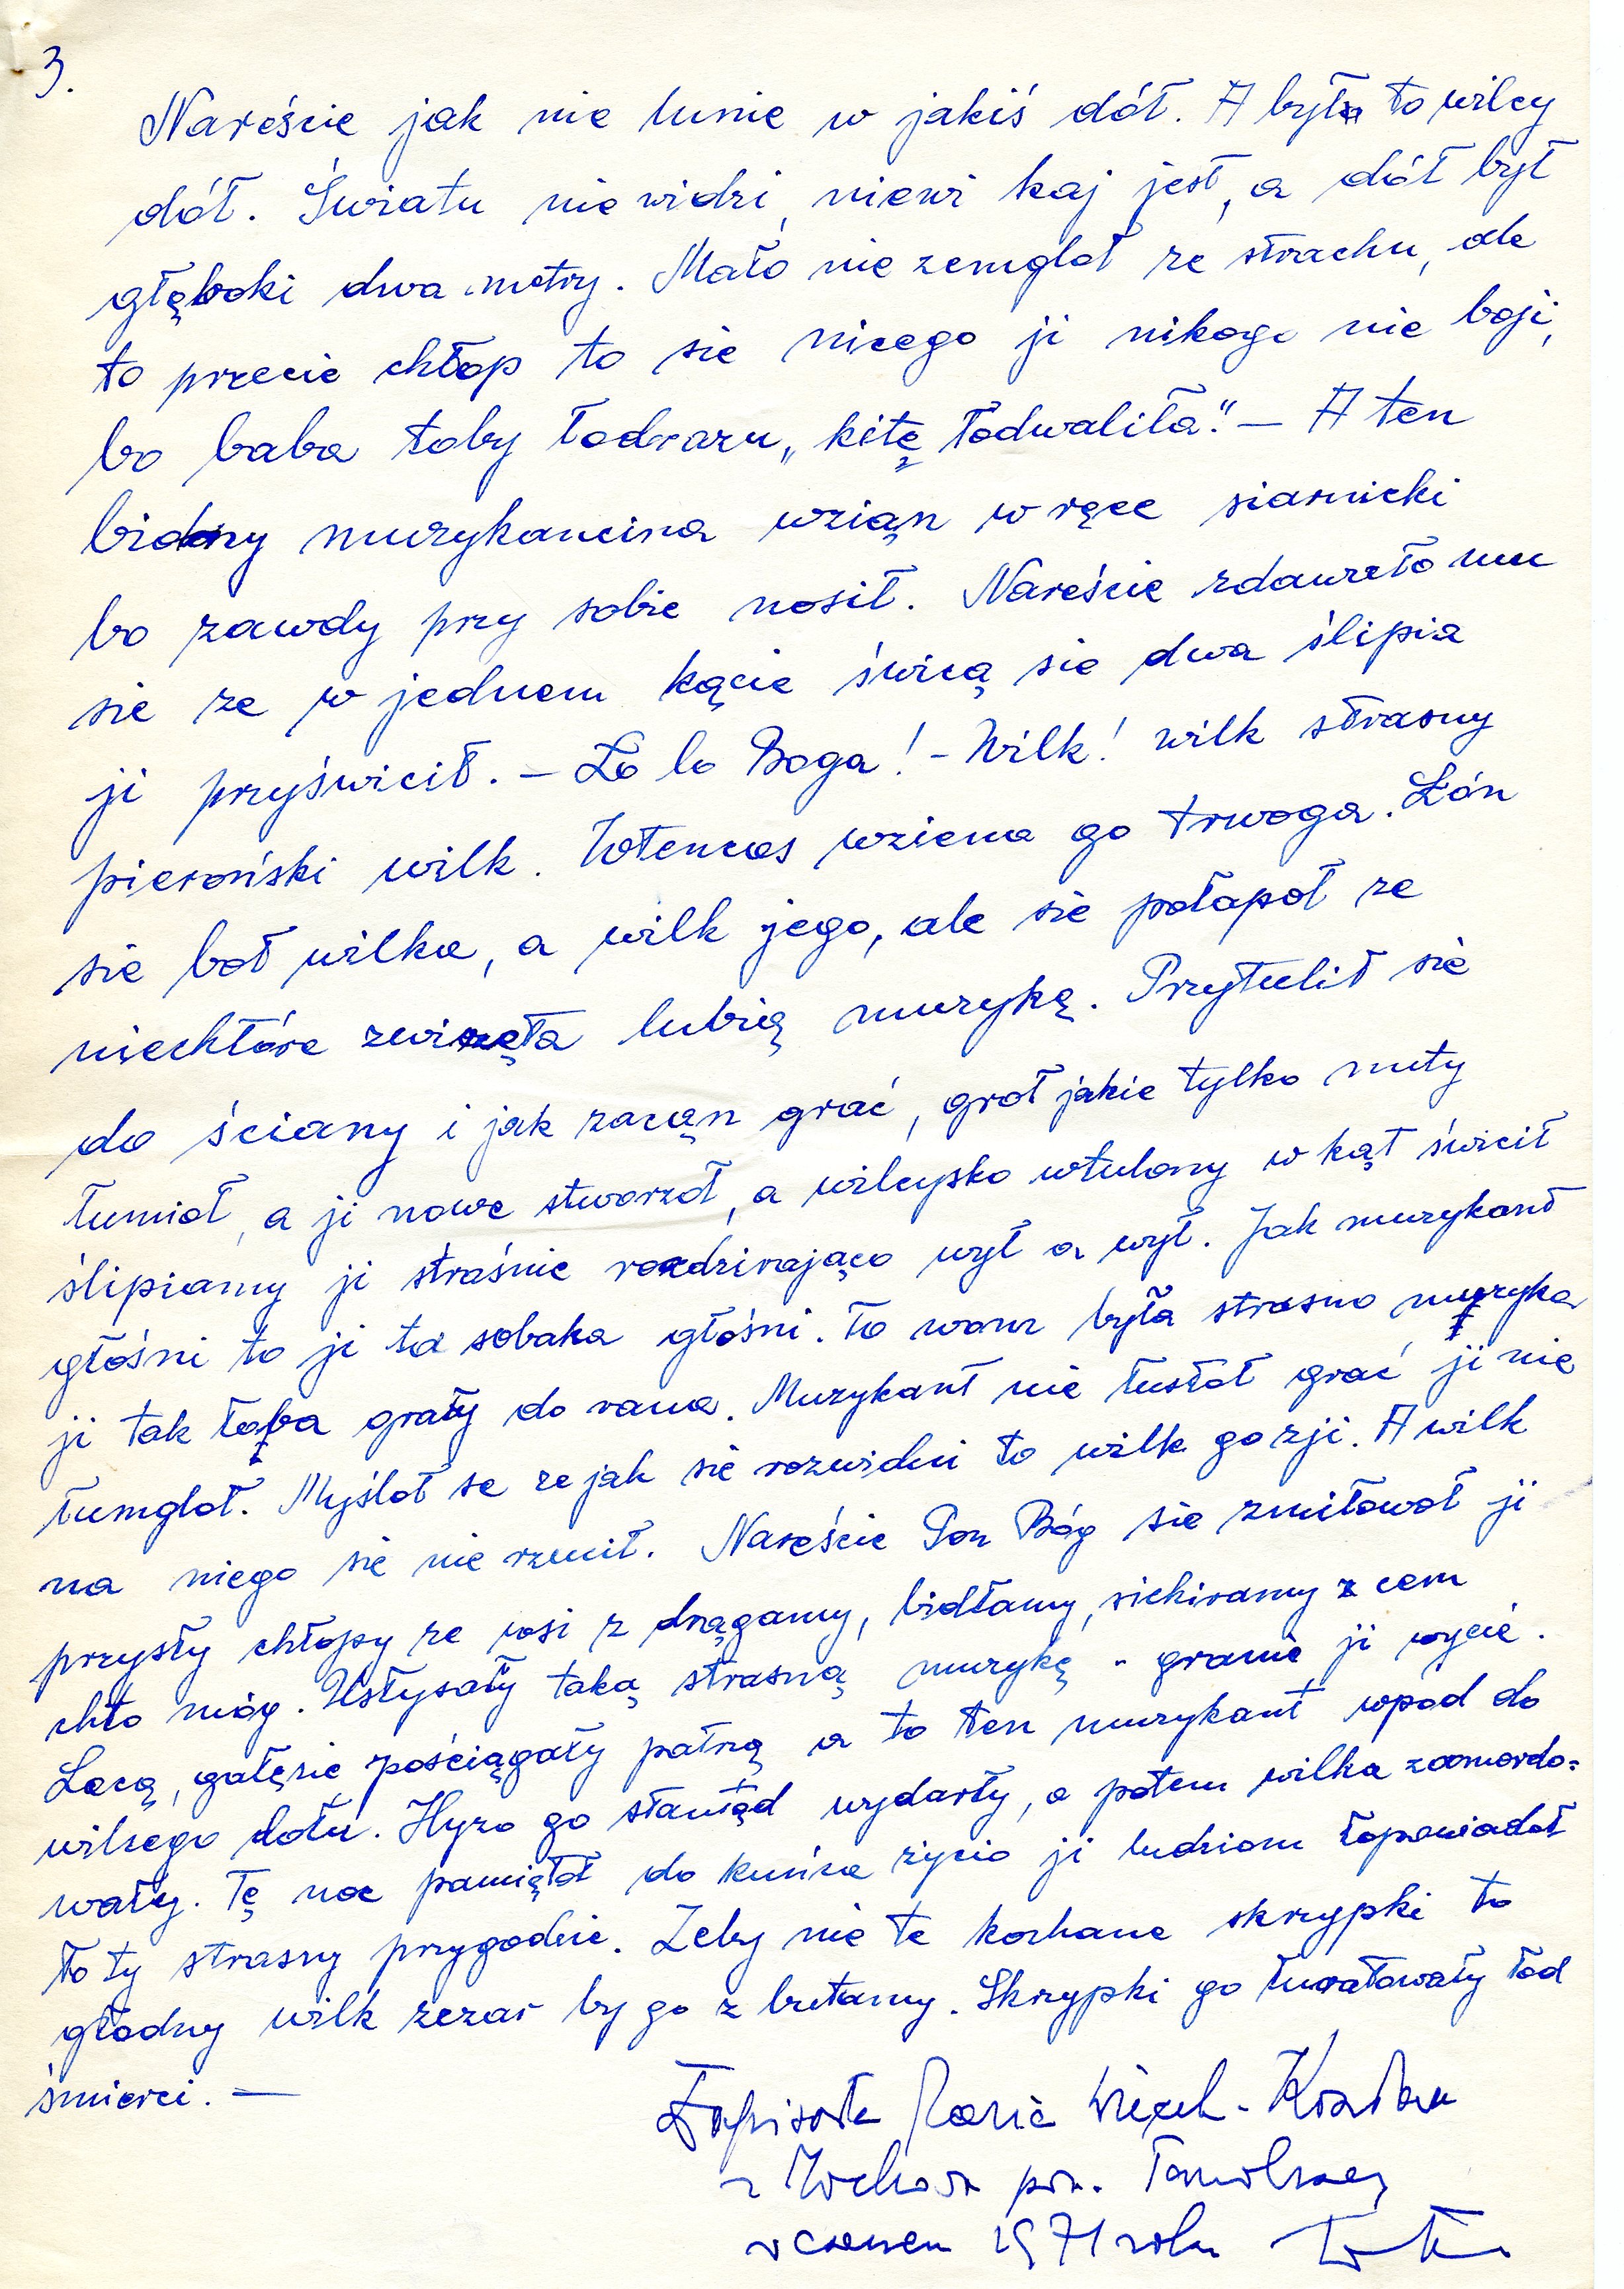 3.
Nareście jak nie łunie w jakiś dół. A był to wilcy
dół. Światu nie widzi, niewi kaj jest, a dół był
głęboki dwa metry. Mało nie zemgloł ze strachu, ale
to przecie chłop to sie nicego ji nikogo nie boji,
bo baba toby łodrazu „kitę łodwaliła". — A ten
bidny muzykancina wziąn w ręce siarnicki
bo zawdy przy sobie nosił. Nareście zdawało mu
sie ze w jednem kącie świcą sie dwa ślipia
ji przyświcił. — Lo lo Boga! - Wilk! wilk strasny
pieroński wilk. Wtencas wziena go trwoga. Łón
sie boł wilka, a wilk jego, ale sie połapoł ze
niechtóre zwirzęta lubią muzykę. Przytulił sie
do ściany i jak zacąn grać, groł jakie tylko nuty
łumioł, a ji nowe stworzoł, a wilcysko wtulony w kąt świcił
ślipiamy ji straśnie rozdzirająco wył a wył. Jak muzykant
głośni to ji ta sobaka głośni. To wom była strasno muzyka
ji tak łoba grały do rana. Muzykant nie łustoł grać ji nie
łumgloł. Myśloł se ze jak sie rozwidni to wilk go zji. A wilk
na niego sie nie rzucił. Nareście Pon Bóg sie zmiłowoł ji
przysły chłopy ze wsi z drągamy, bidłamy, siekiramy z cem
chto móg. Usłysały taką strasną muzykę - granie ji wycie.
Lecą, gałęzie pościągały patrzą a to ten muzykant wpod do
wilcego dołu. Hyzo go stamtąd wydarły, a potem wilka zamordo=
wały. Tę noc pamiętoł do kuńca zycio ji ludziom łopowiadoł
ło ty strasny przygodzie. Zeby nie te kochane skrzypki to
głodny wilk zezar by go z butamy. Skrzypki go łuratowały łod
śmierci. —
Łopisała Maria Kozłowa
z Machowa pow. Tarnobrzeg
w czerwcu 1971 roku